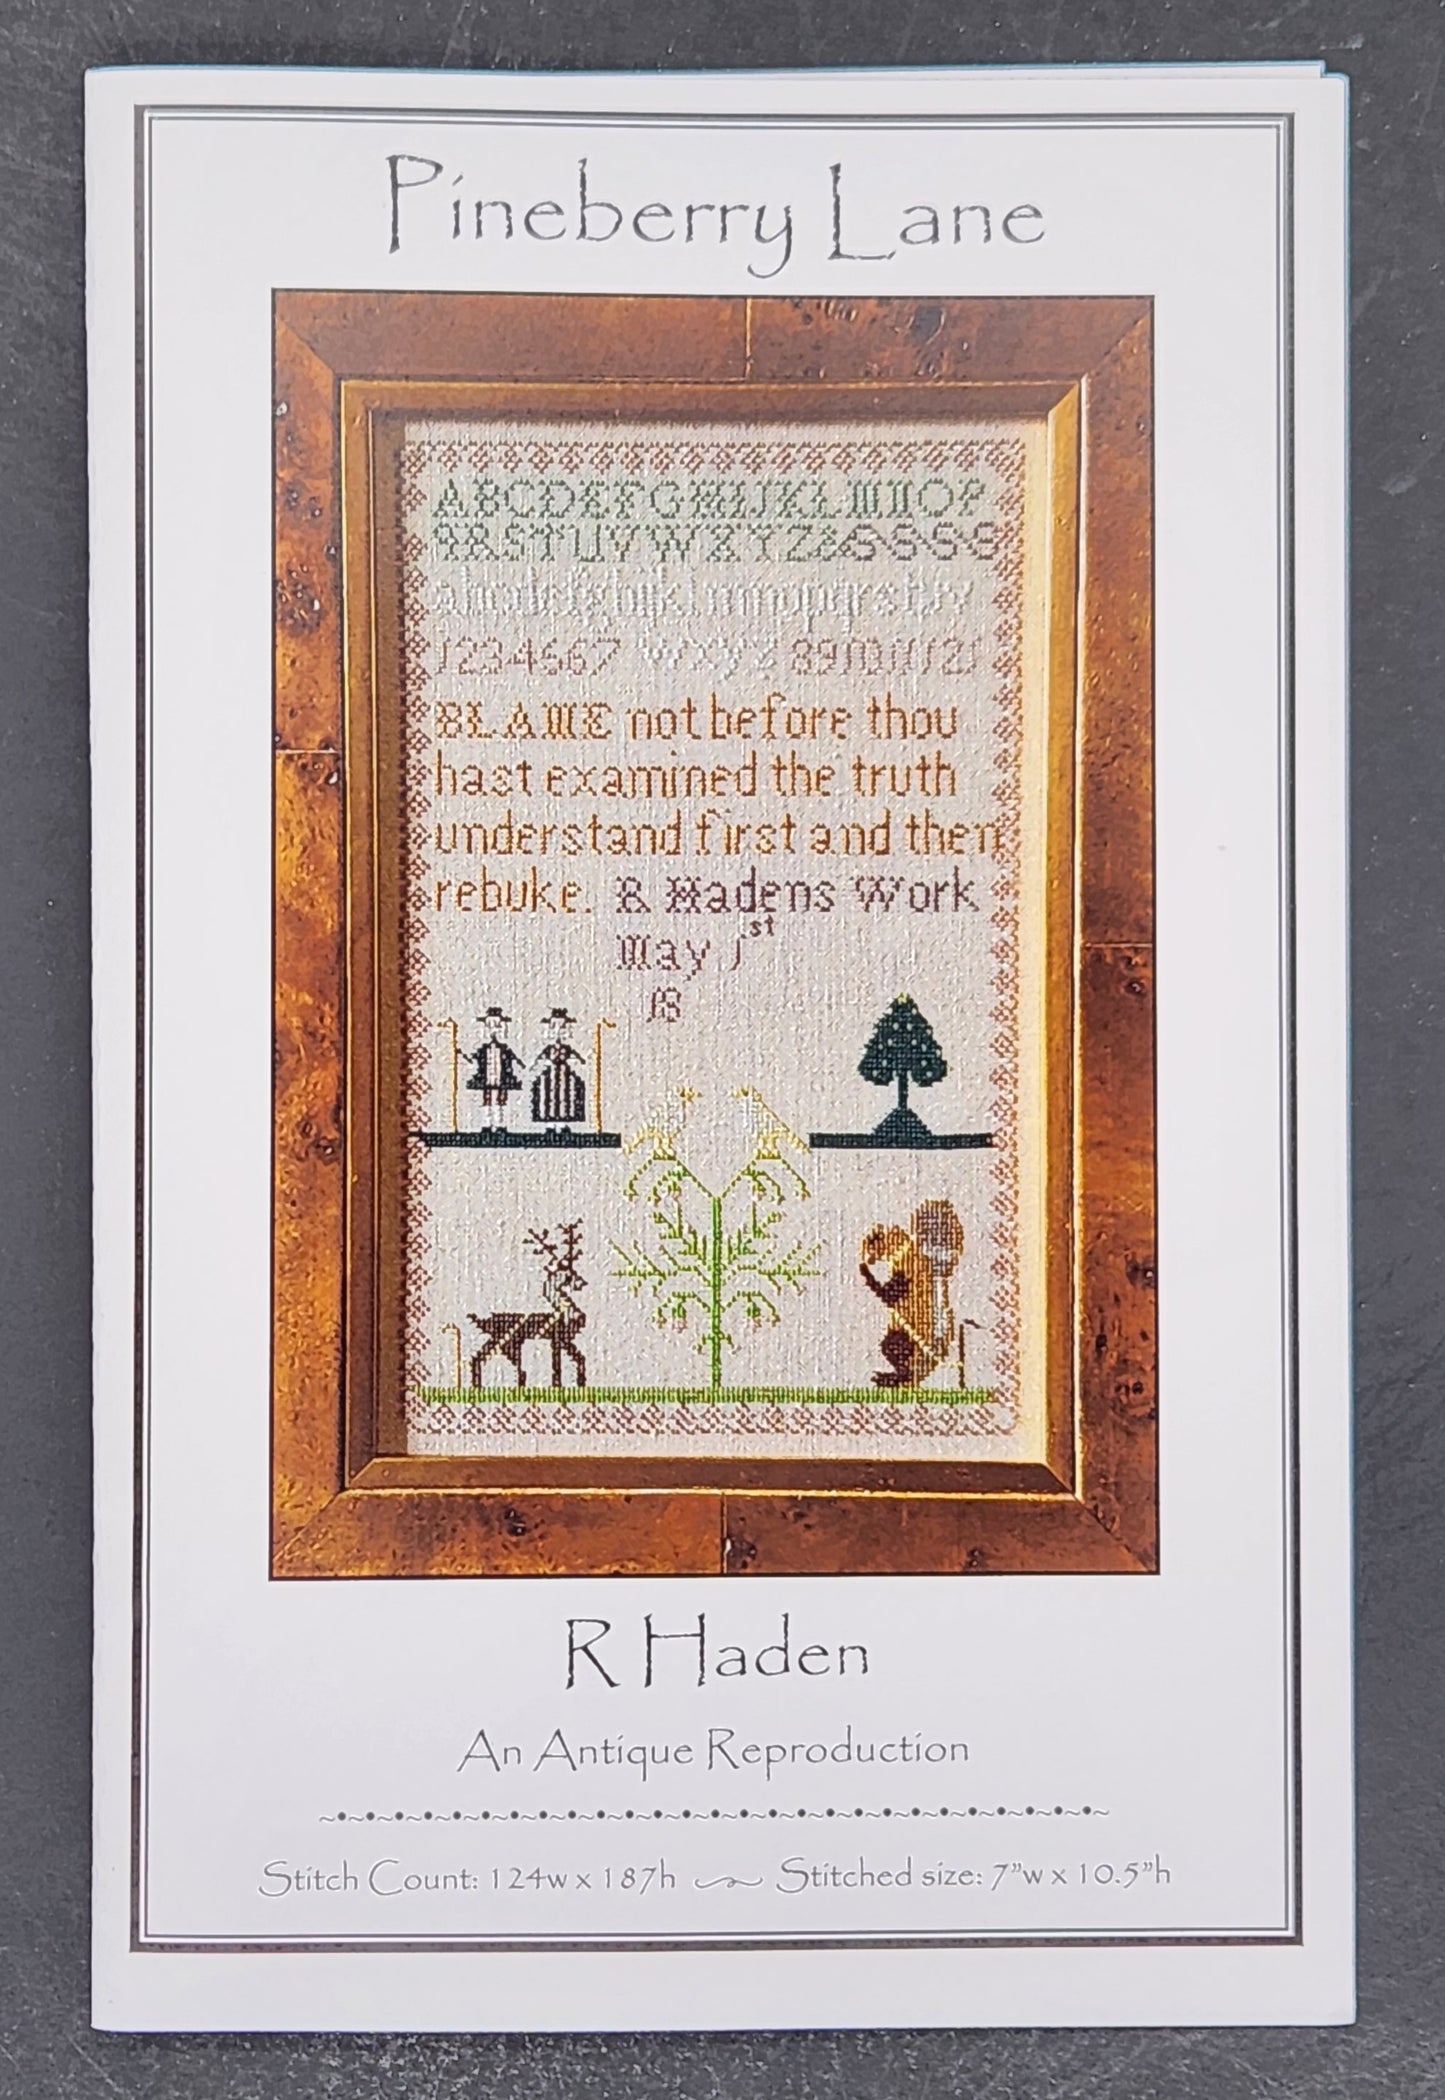 Pineberry Lane
ABCDEFGHIJKLMNOP
QRSTUVWXYZ&SSSS
abcdefghijklmnopqrstuv
1234567 wxyz 89101112
BLAME not before thou
hast examined the truth
understand first and then
rebuke. R Hadens Work
May 1st
18
R Haden
An Antique Reproduction
Stitch Count: 124w x 187h Stitched size: 7"w x 10.5"h